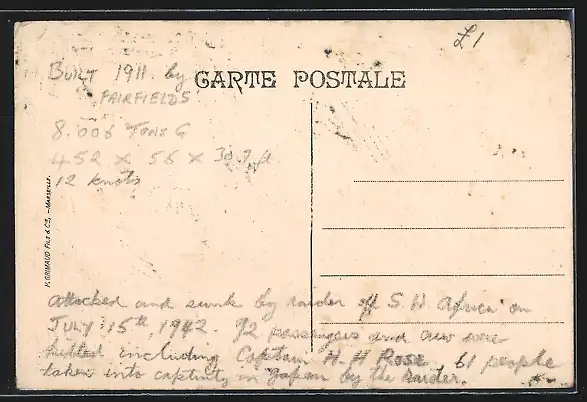 £1
BUILT 1911. by
FAIRFIELDS
CARTE POSTALE
8.006 TONS G
452 x 56 x 30.9 ft
12 knots
H. GRIMAUD FILS & Cie, - MARSEILLE.
attacked and sunk by raider off S. W. Africa on
JULY 15th, 1942. 92 passengers and crew were
killed including Captain H. H Rose. 61 people
taken into captivity in Japan by the raider.